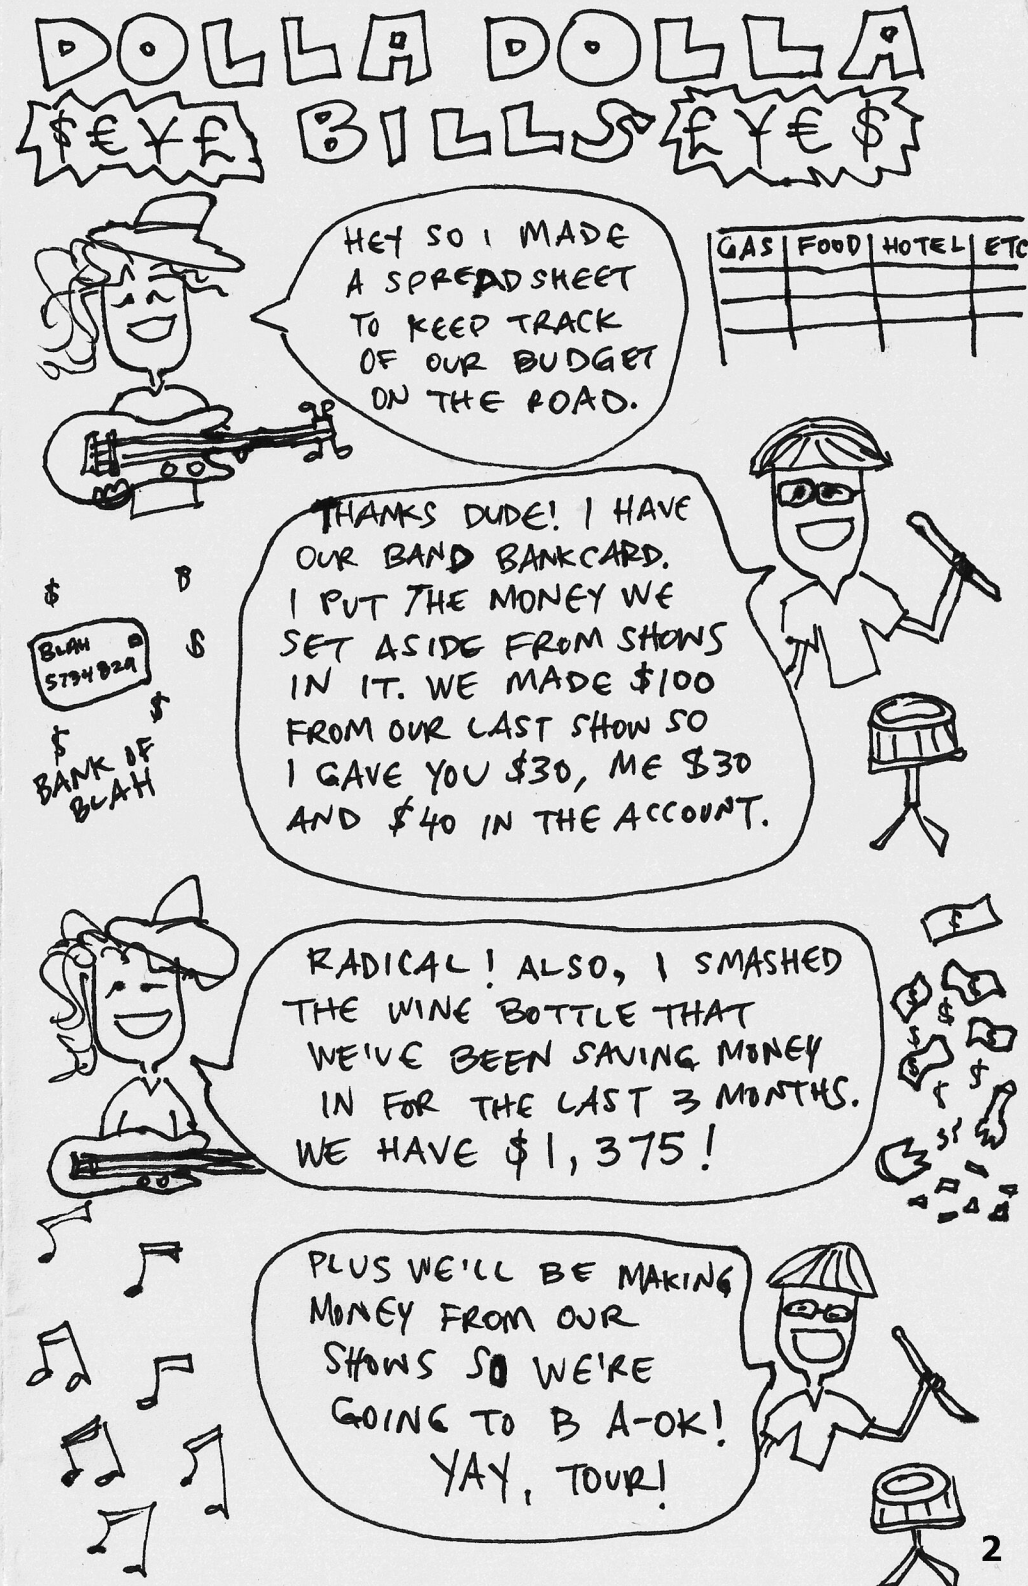 DOLLA DOLLA
$€¥£ BILLS £¥€$
HEY SO I MADE
A SPREADSHEET
TO KEEP TRACK
OF OUR BUDGET
ON THE ROAD.
GAS FOOD HOTEL ETC
THANKS DUDE! I HAVE
OUR BAND BANKCARD.
I PUT THE MONEY WE
SET ASIDE FROM SHOWS
IN IT. WE MADE $100
FROM OUR LAST SHOW SO
I GAVE YOU $30, ME $30
AND $40 IN THE ACCOUNT.
BLAH
5734829
BANK OF
BLAH
RADICAL! ALSO, I SMASHED
THE WINE BOTTLE THAT
WE'VE BEEN SAVING MONEY
IN FOR THE LAST 3 MONTHS.
WE HAVE $1,375!
PLUS WE'LL BE MAKING
MONEY FROM OUR
SHOWS SO WE'RE
GOING TO B A-OK!
YAY, TOUR!
2